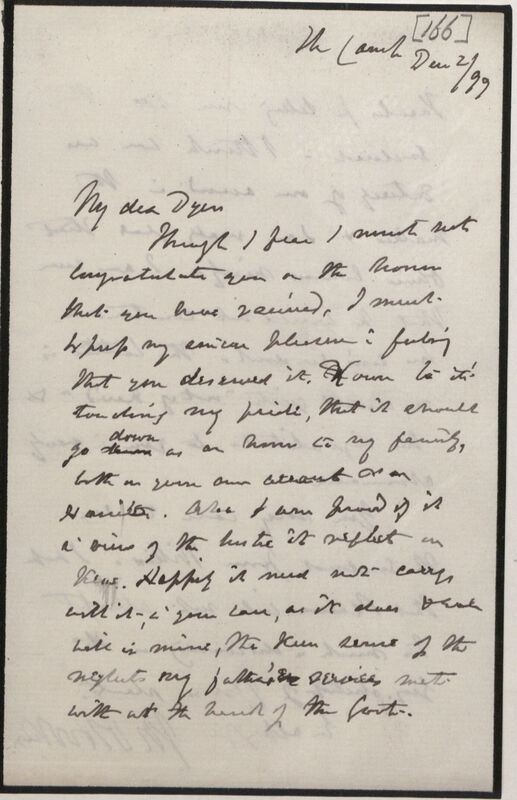 [166]
The Camp
Dec 2/99
My dear Dyer
Though I fear I must not
congratulate you on the honor
that you have received, I must
express my sincere pleasure in feeling
that you deserved it. I own to its
touching my pride, that it should
go down as an honor to my family,
both on your own account & on
Harriet's. Also I am proud of it
in view of the lustre it reflects on
Kew. Happily it need not carry
with it, in your case, as it does &
will in mine, the keen sense of the
neglects my father's services met
with at the hands of the Govt.